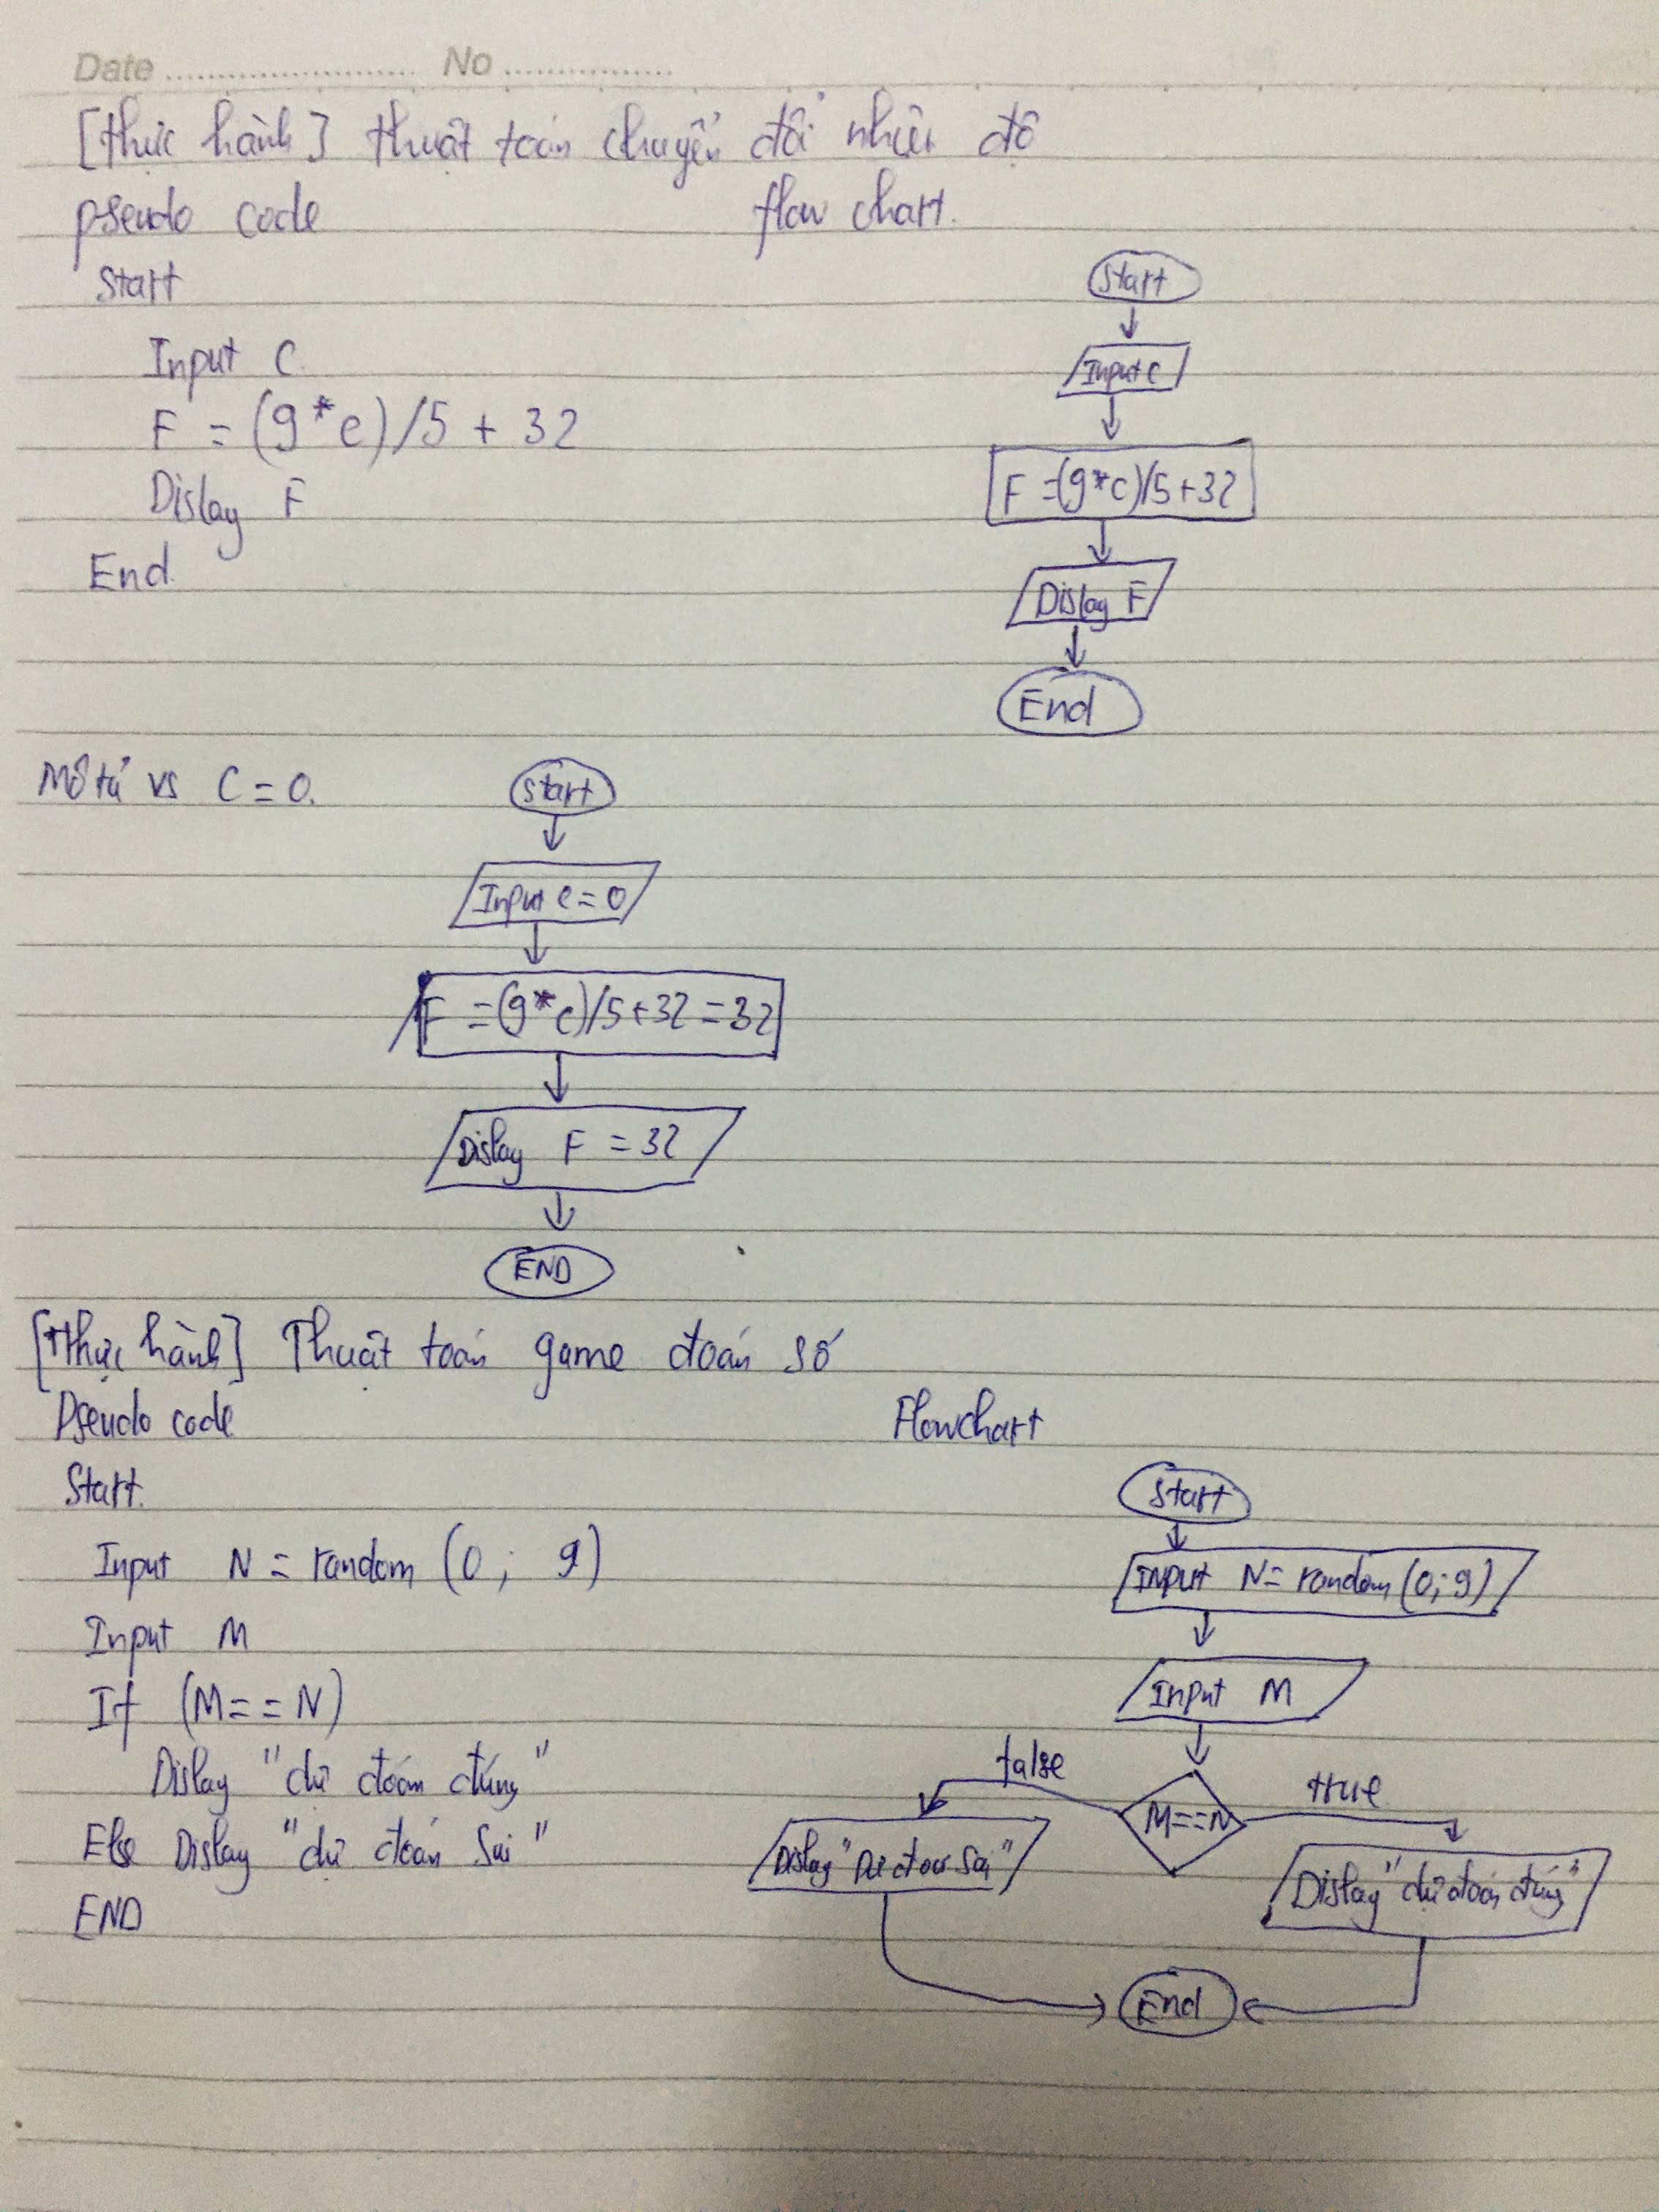 Date ........................ No ................
[thực hành] thuật toán chuyển đổi nhiệt độ
pseudo code
flow chart.
Start
Input C
F = (9*c)/5 + 32
Dislay F
End.
Start
Input C
F = (9*c)/5+32
Dislay F
End
Mô tả vs C = 0.
Start
Input c = 0
F = (9*c)/5+32 = 32
Dislay F = 32
END
[Thực hành] Thuật toán game đoán số
Pseudo code
Flowchart
Start.
Input N = random (0 ; 9)
Input M
If (M==N)
Dislay "dự đoán đúng"
Else Dislay "dự đoán sai"
END
Start
INPUT N= random (0; 9)
Input M
M==N
false
true
Dislay "Dự đoán sai"
Dislay "dự đoán đúng"
End